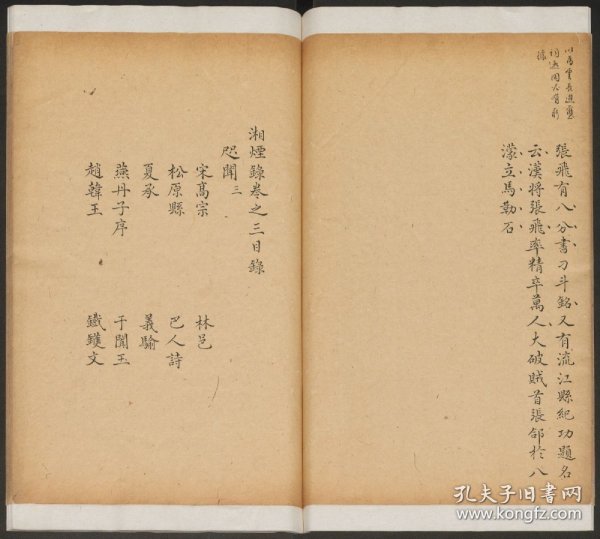 張飛有八分書刁斗銘又有流江縣紀功題名
云漢將張飛率精卒萬人大破賊首張郃於八
濛立馬勒石
湘煙錄卷之三目錄
咫聞三
宋高宗
林邑
松原縣
巴人詩
夏承
義騟
燕丹子序
于闐玉
趙韓王
鐵鑊文
孔夫子旧书网
www.kongfz.com